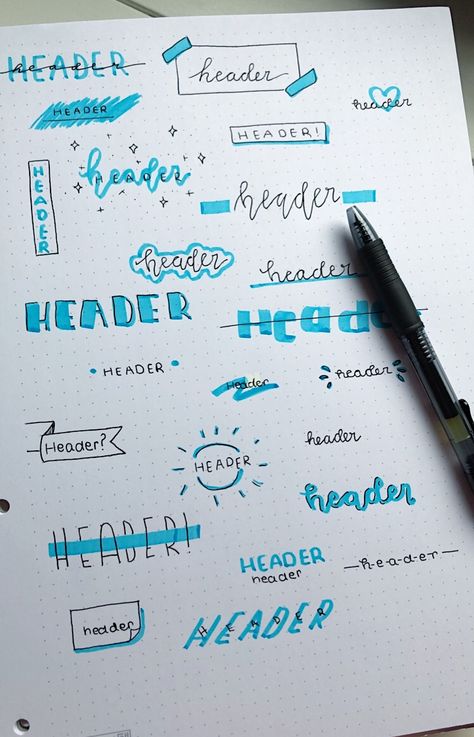 HEADER
header
header
HEADER
header
HEADER!
HEADER
header
HEADER
header
header
header
HEADER
Header
HEADER
Header
header
Header?
HEADER
header
header
HEADER!
HEADER
header
-h-e-a-d-e-r-
header
HEADER
HEADER